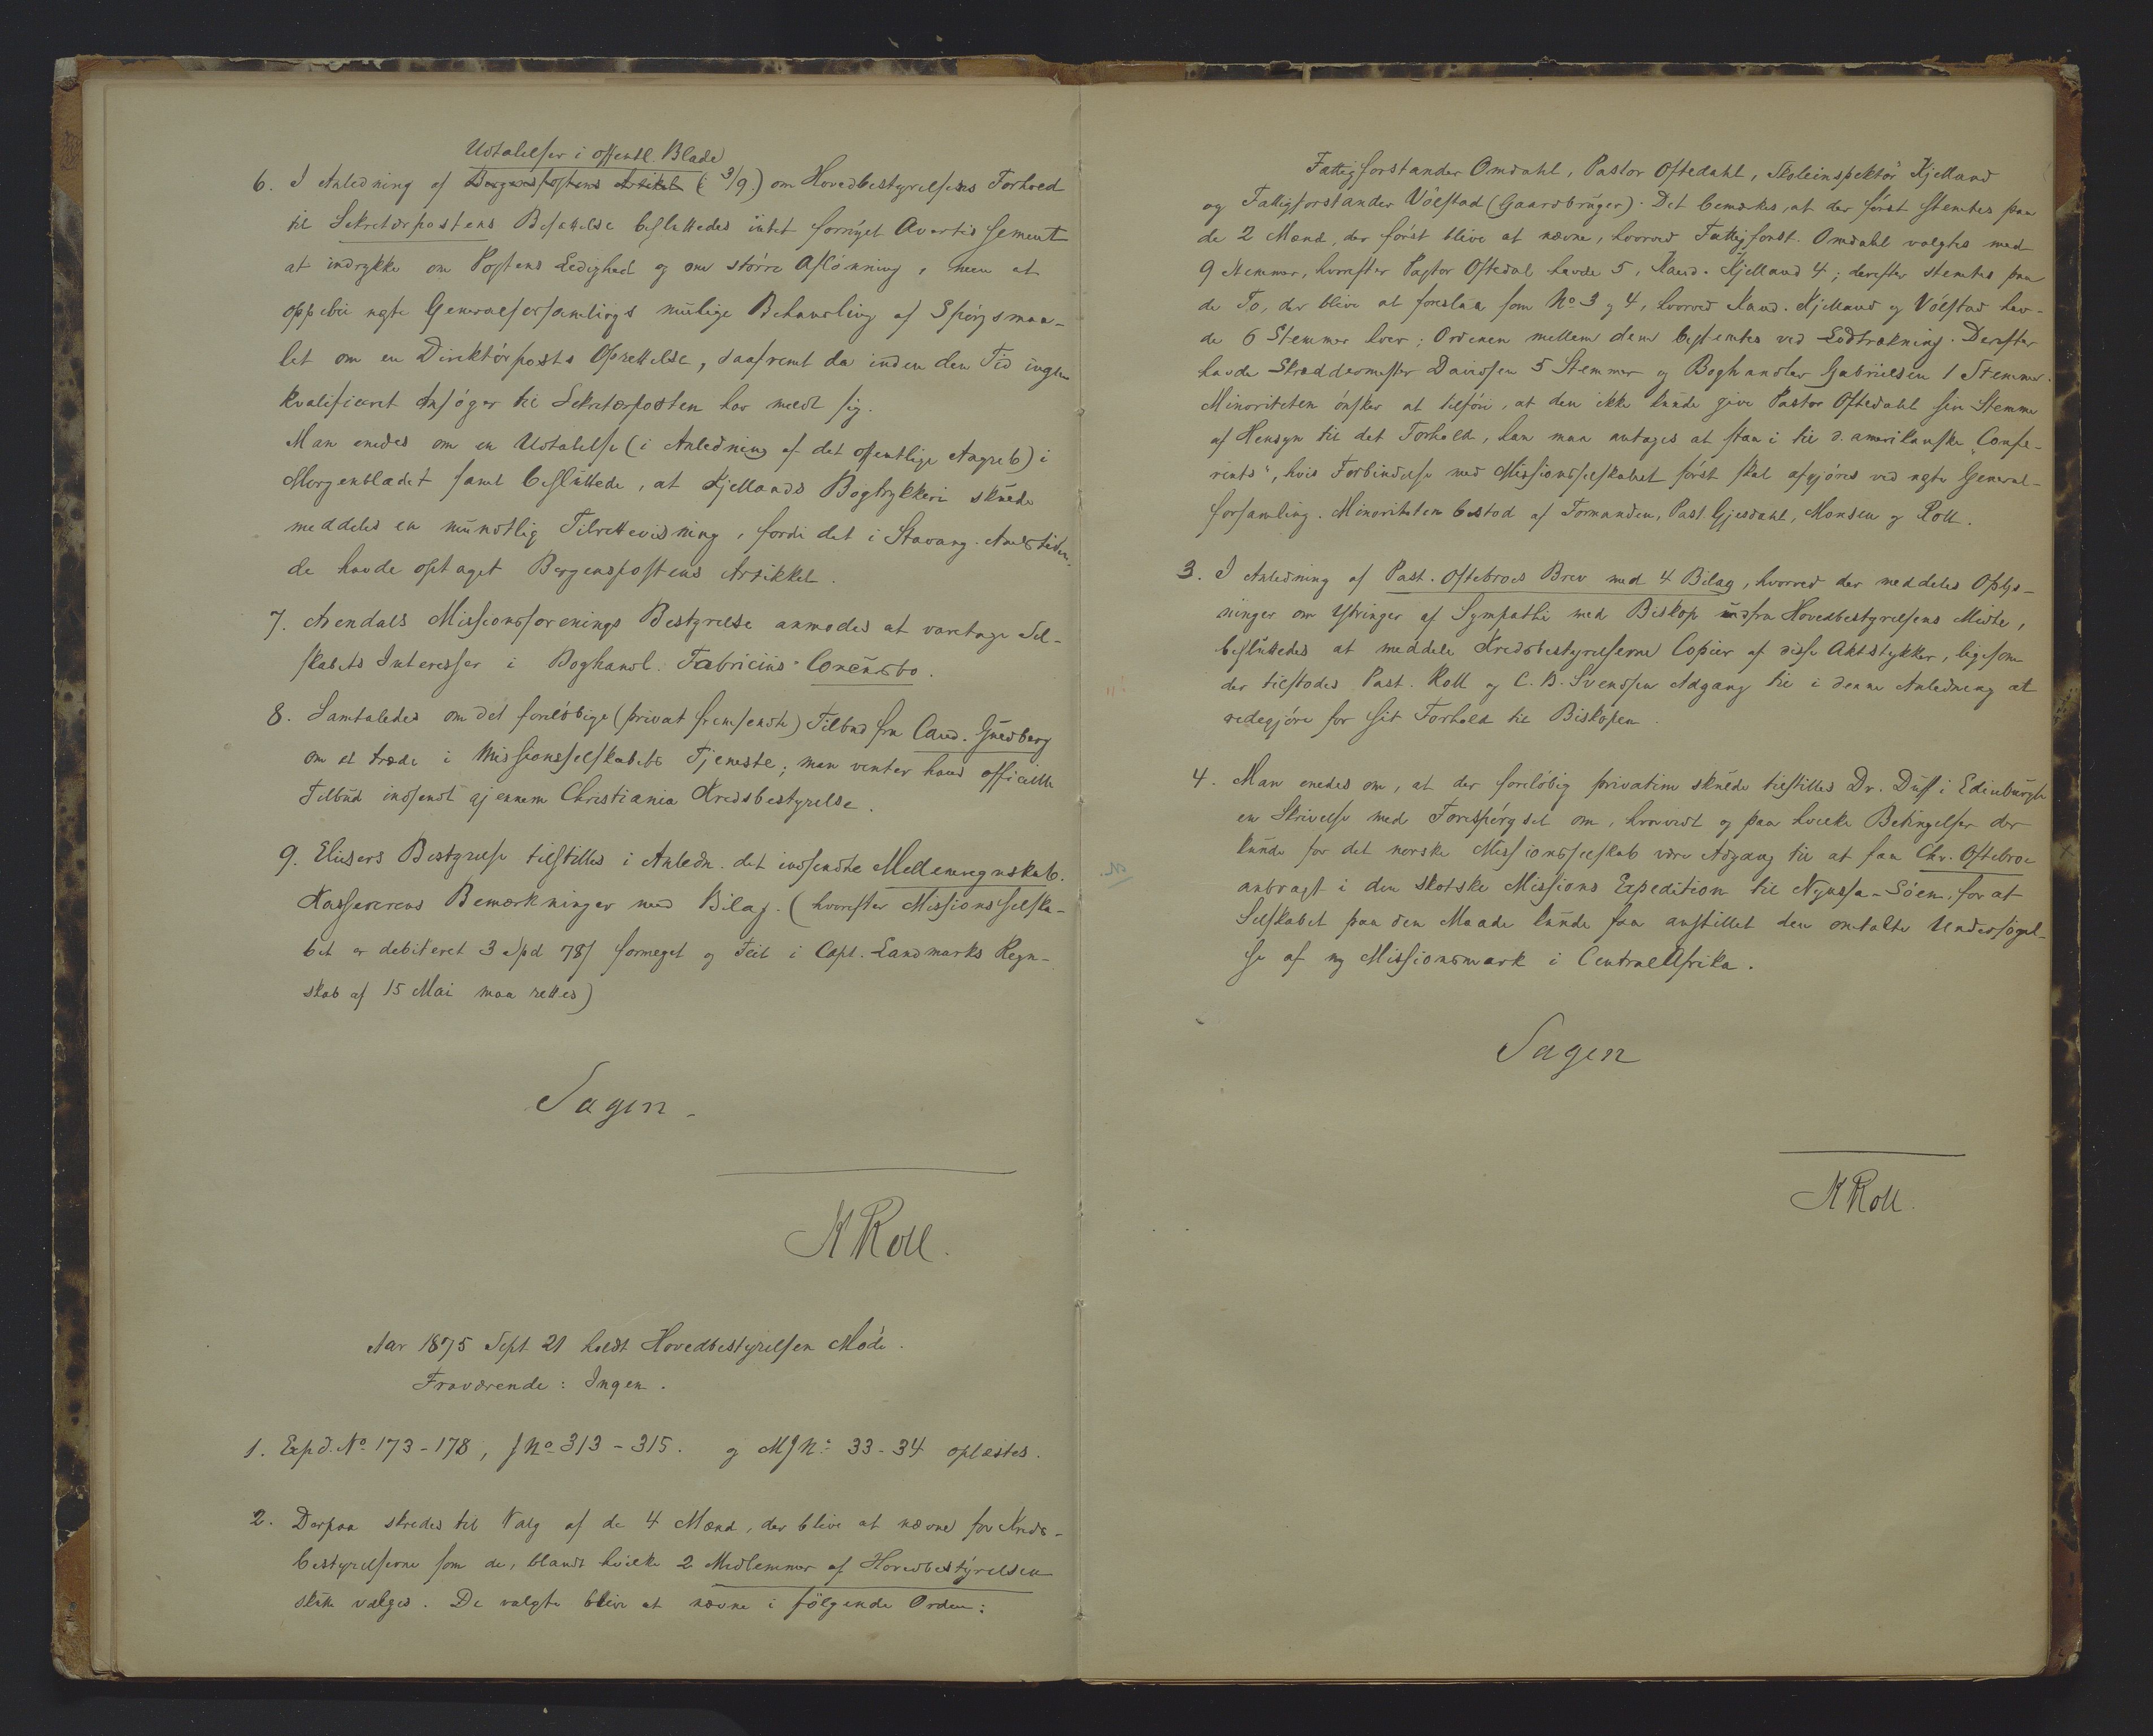 Udtalelser i offentl. Blade
6. I Anledning af Bergenspostens Artikel (3/9.) om Hovedbestyrelsens Forhold
til Sekretærpostens Besættelse besluttedes intet fornyet Avertissement
at indrykke om Postens Ledighed og om större Aflönning, men at
oppebie næste Generalforsamlings mulige Behandling af Spörgsmaa-
let om en Direktörposts Oprettelse, saafremt da inden den Tid ingen
kvalificeret Ansöger til Sekretærposten har meldt sig.
Man enedes om en Udtalelse (i Anledning af det offentlige Angreb) i
Morgenbladet samt besluttede, at Kjellands Bogtrykkeri skulde
meddeles en mundtlig Tilrettevisning, fordi det i Stavang. Amtstiden-
de havde optaget Bergenspostens Artikkel.
7. Arendals Missionsforenings Bestyrelse anmodes at varetage Sel-
skabets Interesser i Boghandl. Fabricius' Concursbo.
8. Samtaledes om det foreløbige (privat fremsendte) Tilbud fra Cand. Guldberg
om at træde i Missionsselskabets Tjeneste; man venter hans officielle
Tilbud indsendt gjennem Christiania Kredsbestyrelse.
9. Eliesers Bestyrelse tilstilles i Anledn. det indsendte Mellemregnskab.
Kassererens Bemærkninger med Bilag. (hvorefter Missionsselska-
bet er debiteret 3 Spd 78 ß formeget og Feil i Capt. Landmarks Regn-
skab af 15 Mai maa rettes)
Sagen
K Roll.
Aar 1875 Sept 21 holdt Hovedbestyrelsen Möde.
Fraværende: Ingen.
1. Expd. No 173-178, J No 313-315. og MJN: 33-34 oplæstes.
2. Derpaa skredes til Valg af de 4 Mænd, der blive at nævne for Kreds-
bestyrelserne som de, blandt hvilke 2 Medlemmer af Hovedbestyrelsen
skulle vælges. De valgte blive at nævne i fölgende Orden:
Fattigforstander Omdahl, Pastor Oftedahl, Skoleinspektör Kjelland
og Fattigforstander Völstad (Gaardbruger). Det bemærkes, at der först stemtes paa
de 2 Mænd, der först blive at nævne, hvorved Fattigforst. Omdahl valgtes med
9 Stemmer, hvorefter Pastor Oftedal havde 5, Kand. Kjelland 4; derefter stemtes paa
de To, der blive at foreslaa som No 3 og 4, hvorved Kand. Kjelland og Völstad hav-
de 6 Stemmer hver; Ordenen mellem dem bestemtes ved Lodtrækning. Derefter
havde Skræddermester Davidsen 5 Stemmer og Boghandler Gabrielsen 1 Stemme.
Minoriteten önsker at tilföie, at den ikke kunde give Pastor Oftedahl sin Stemme
af Hensyn til det Forhold, han maa antages at staa i til d. amerikanske "Confe-
rents", hvis Forbindelse med Missionsselskabet först skal afgjöres ved næste General-
forsamling. Minoriteten bestod af Formanden, Past. Gjesdahl, Monsen og Roll.
3. I Anledning af Past. Oftebroes Brev med 4 Bilag, hvorved der meddeles Oplys-
ninger om Ytringer af Sympathi med Biskop indfra Hovedbestyrelsens Midte,
besluttedes at meddele Kredsbestyrelserne Copier af disse Aktstykker, ligesom
der tilstodes Past. Roll og C. B. Svendsen Adgang til i denne Anledning at
redegjöre for sit Forhold til Biskopen.
4. Man enedes om, at der foreløbig privatim skulde tilstilles Dr. Duff i Edinburgh
en Skrivelse med Forespörgsel om, hvorvidt og paa hvilke Betingelser der
kunde for det norske Missionsselskab være Adgang til at faa Chr. Oftebroe
anbragt i den skotske Missions Expedition til Nyassa-Söen, for at
Selskabet paa den Maade kunde faa anstillet den omtalte Undersögel-
se af ny Missionsmark i CentralAfrika.
Sagen
K Roll.